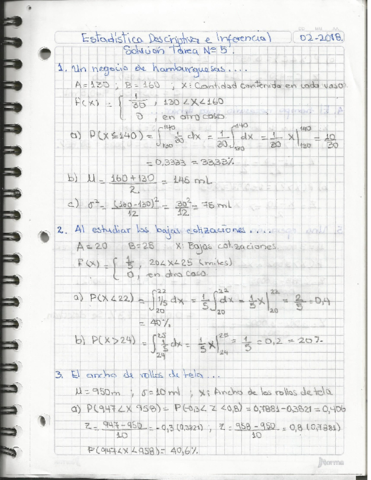 Estadística Descriptiva e Inferencial 02-2018
Solución Tarea N° 5.
1. Un negocio de hamburguesas....
A=130, B=160, X: Cantidad contenida en cada vaso
F(x) = { 1/30, 130<X<160
0, en otro caso
a) P(X≤140) = ∫₁₃₀¹⁴⁰ 1/30 dx = 1/30 ∫₁₃₀¹⁴⁰ dx = 1/30 X |₁₃₀¹⁴⁰ = 10/30
= 0,3333 = 33,33%
b) μ = 160+130/2 = 145 mL
c) σ² = (160-130)²/12 = 30²/12 = 75 mL
2. Al estudiar las bajas cotizaciones.....
A=20 B=25 X: Bajas cotizaciones
F(X) = { 1/5, 20<X<25 (miles)
0, en otro caso
a) P(X<22) = ∫₂₀²² 1/5 dx = 1/5 ∫₂₀²² dx = 1/5 X |₂₀²² = 2/5 = 0,4
= 40%
b) P(X>24) = ∫₂₄²⁵ 1/5 dx = 1/5 X |₂₄²⁵ = 1/5 = 0,2 = 20%
3. El ancho de rollos de tela...
μ = 950m, σ = 10ml, X: Ancho de los rollos de tela
a) P(947<X<958) = P(-0,3<Z<0,8) = 0,7881-0,3821 = 0,406
Z = 947-950/10 = -0,3 (0,3821), Z = 958-950/10 = 0,8 (0,7881)
P(947<X<958) = 40,6%
norma